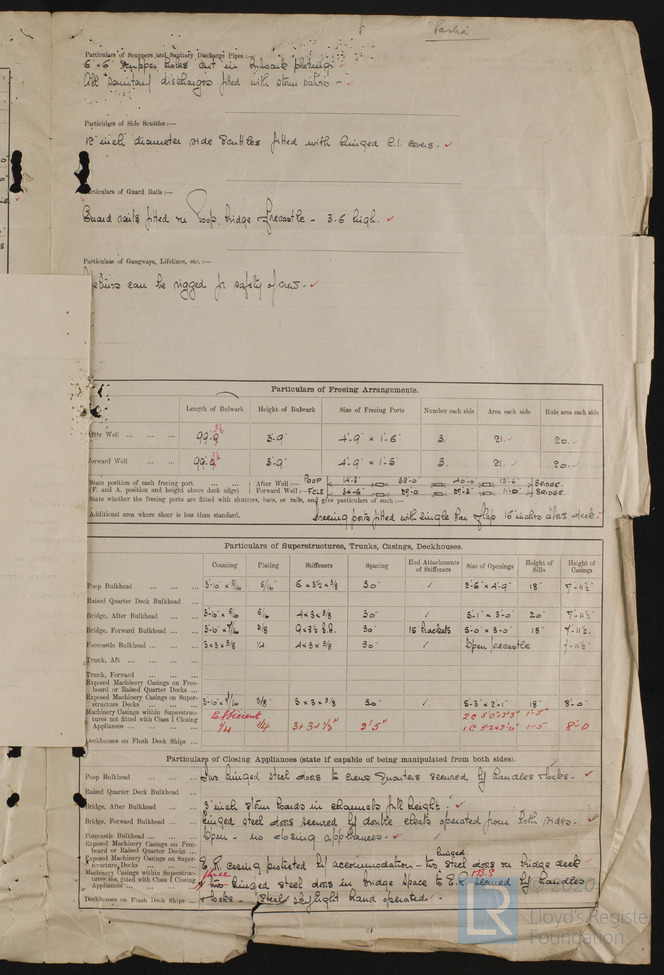 "Pasha"
Particulars of Scuppers and Sanitary Discharge Pipes :—
6 - 6 scupper holes cut in bulwark plating.
All sanitary discharges fitted with storm valves - ✓
Particulars of Side Scuttles :—
12 inch diameter side scuttles fitted with hinged C.I. covers. ✓
Particulars of Guard Rails :—
Guard rails fitted on Poop, bridge & forecastle - 3.6 high. ✓
Particulars of Gangways, Lifelines, etc. :—
can be rigged for safety of crew. ✓
Particulars of Freeing Arrangements.
Length of Bulwark Height of Bulwark Size of Freeing Ports Number each side Area each side Rule area each side
After Well ... ... ... 99.9 3'.9" 4'.9" × 1'.6" 3. 21. 20.
Forward Well ... 99.9 3'.9" 4'.9" × 1'.6" 3. 21. 20.
State position of each freeing port ... ... After Well :— POOP 40-0 BRIDGE.
(F. and A. position and height above deck edge) Forward Well :— FCLE 11-0 BRIDGE.
State whether the freeing ports are fitted with shutters, bars, or rails, and give particulars of such :—
Additional area where sheer is less than standard. freeing ports fitted with single bar & flap 16 inches above deck.
Particulars of Superstructures, Trunks, Casings, Deckhouses.
Coaming Plating Stiffeners Spacing End Attachments of Stiffeners Size of Openings Height of Sills Height of Casings
Poop Bulkhead ... ... ... 3'-10" × 5/16 5/16" 6 × 3½ × 3/8 30" ✓ 3'-6" × 4'-9" 18" 7'-11½"
Raised Quarter Deck Bulkhead ...
Bridge, After Bulkhead ... ... 3'-10" × 5/16 5/16 4 × 3 × 3/8 30" ✓ 5'-1" × 3'-0" 20" 7'-11½"
Bridge, Forward Bulkhead ... ... 3'-10" × 7/16 3/8 9 × 3½ B.A. 30" 15 brackets 5'-0" × 3'-0" 18" 7'-11½.
Forecastle Bulkhead ... ... ... 3 × 3 × 3/8 1/4 4 × 3 × 3/8 30" ✓ Open forecastle 7'-11½"
Trunk, Aft ... ... ...
Trunk, Forward ... ... ...
Exposed Machinery Casings on Freeboard or Raised Quarter Decks ...
Exposed Machinery Casings on Superstructure Decks ... ... 3'-10" × 7/16 3/8" 3 × 3 × 3/8 30" ✓ 5'-3" × 2'-1" 18" 8'-0"
Machinery Casings within Superstructures not fitted with Class I Closing Appliances ... ... ... Efficient 1/4 1/4 2'5" 1'-5" 8'-0
Deckhouses on Flush Deck Ships ...
Particulars of Closing Appliances (state if capable of being manipulated from both sides).
Poop Bulkhead ... ... ... Two hinged steel doors to crews quarters secured by handles & locks. ✓
Raised Quarter Deck Bulkhead
Bridge, After Bulkhead ... ... 3 inch storm boards in channels full height. ✓
Bridge, Forward Bulkhead ... ... Hinged steel doors secured by double cleats operated from both sides. ✓
Forecastle Bulkhead ... ... ... Open - no closing appliances. ✓
Exposed Machinery Casings on Freeboard or Raised Quarter Decks ...
Exposed Machinery Casings on Superstructure Decks ... ... E.R. casing protected by accommodation - two hinged steel doors on bridge deck
Machinery Casings within Superstructures not fitted with Class I Closing Appliances ... ... three hinged steel doors in bridge space to E.R. & B.S secured by handles
Deckhouses on Flush Deck Ships ... & locks. - Steel skylight hand operated. ✓
LR
© 2020
Lloyd's Register
Foundation